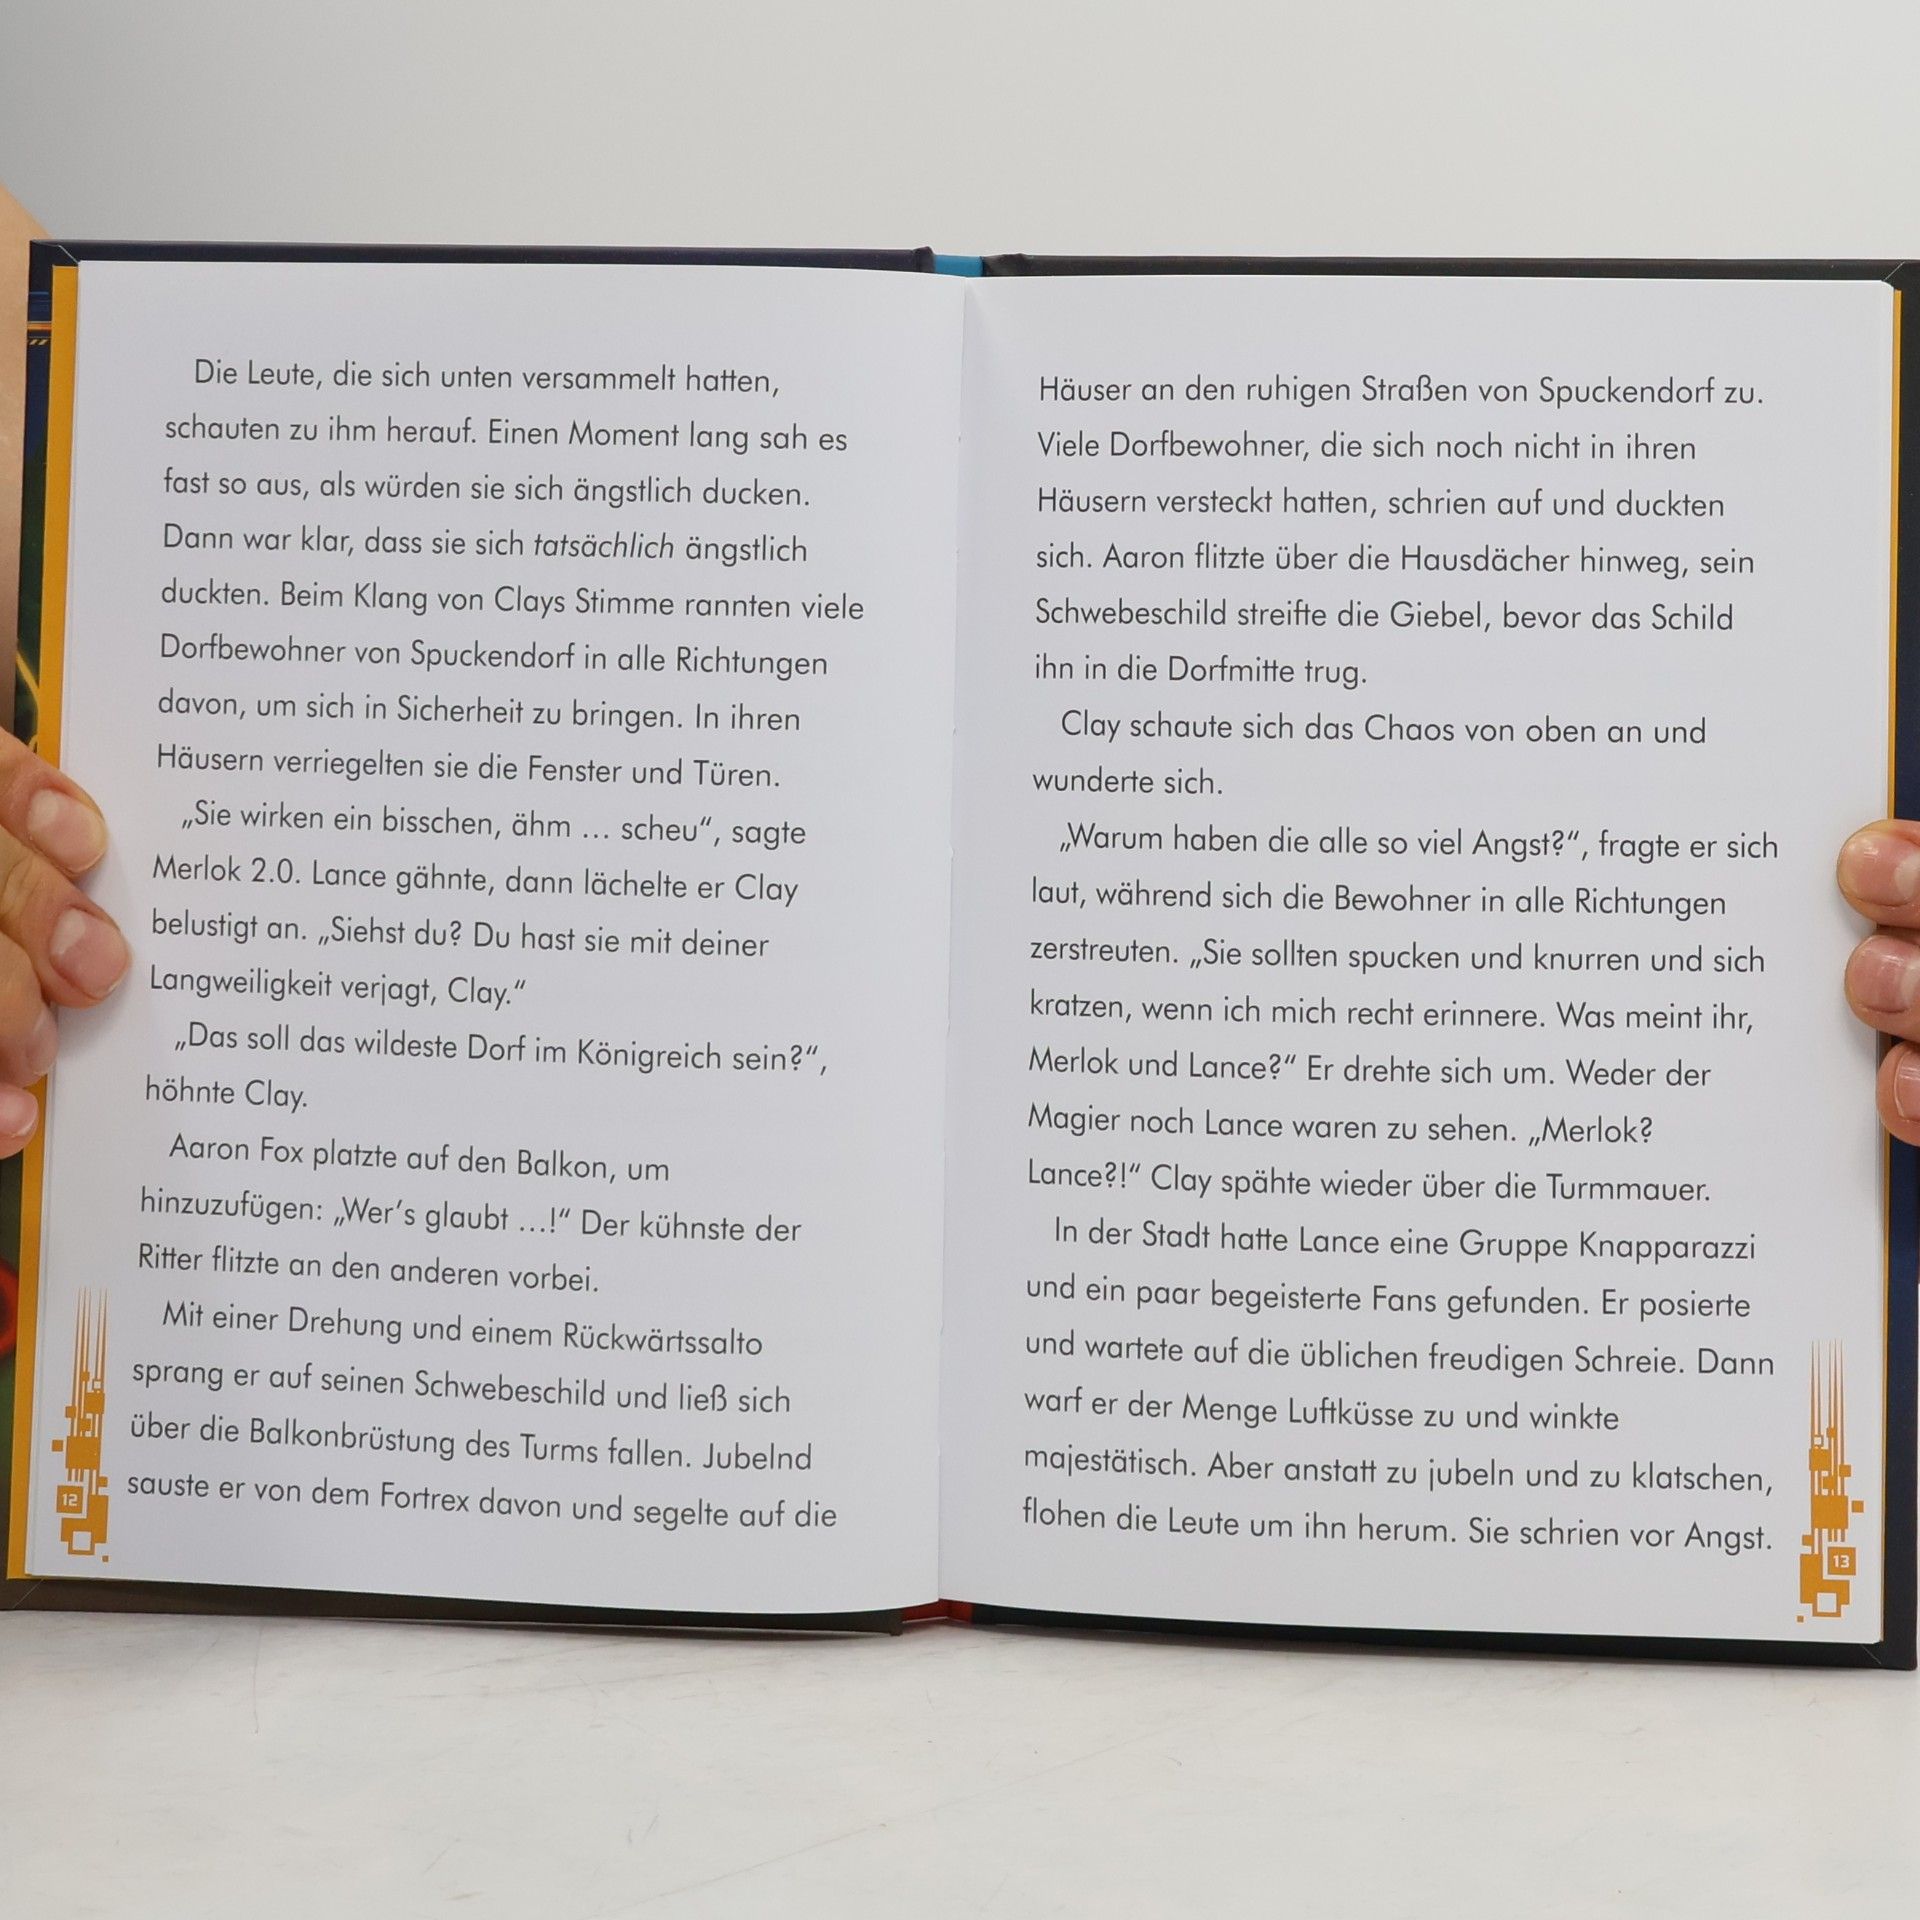 Die Leute, die sich unten versammelt hatten,
schauten zu ihm herauf. Einen Moment lang sah es
fast so aus, als würden sie sich ängstlich ducken.
Dann war klar, dass sie sich tatsächlich ängstlich
duckten. Beim Klang von Clays Stimme rannten viele
Dorfbewohner von Spuckendorf in alle Richtungen
davon, um sich in Sicherheit zu bringen. In ihren
Häusern verriegelten sie die Fenster und Türen.
„Sie wirken ein bisschen, ähm ... scheu“, sagte
Merlok 2.0. Lance gähnte, dann lächelte er Clay
belustigt an. „Siehst du? Du hast sie mit deiner
Langweiligkeit verjagt, Clay.“
„Das soll das wildeste Dorf im Königreich sein?“,
höhnte Clay.
Aaron Fox platzte auf den Balkon, um
hinzuzufügen: „Wer’s glaubt ...!“ Der kühnste der
Ritter flitzte an den anderen vorbei.
Mit einer Drehung und einem Rückwärtssalto
sprang er auf seinen Schwebeschild und ließ sich
über die Balkonbrüstung des Turms fallen. Jubelnd
sauste er von dem Fortrex davon und segelte auf die
12
Häuser an den ruhigen Straßen von Spuckendorf zu.
Viele Dorfbewohner, die sich noch nicht in ihren
Häusern versteckt hatten, schrien auf und duckten
sich. Aaron flitzte über die Hausdächer hinweg, sein
Schwebeschild streifte die Giebel, bevor das Schild
ihn in die Dorfmitte trug.
Clay schaute sich das Chaos von oben an und
wunderte sich.
„Warum haben die alle so viel Angst?“, fragte er sich
laut, während sich die Bewohner in alle Richtungen
zerstreuten. „Sie sollten spucken und knurren und sich
kratzen, wenn ich mich recht erinnere. Was meint ihr,
Merlok und Lance?“ Er drehte sich um. Weder der
Magier noch Lance waren zu sehen. „Merlok?
Lance?!“ Clay spähte wieder über die Turmmauer.
In der Stadt hatte Lance eine Gruppe Knapparazzi
und ein paar begeisterte Fans gefunden. Er posierte
und wartete auf die üblichen freudigen Schreie. Dann
warf er der Menge Luftküsse zu und winkte
majestätisch. Aber anstatt zu jubeln und zu klatschen,
flohen die Leute um ihn herum. Sie schrien vor Angst.
13